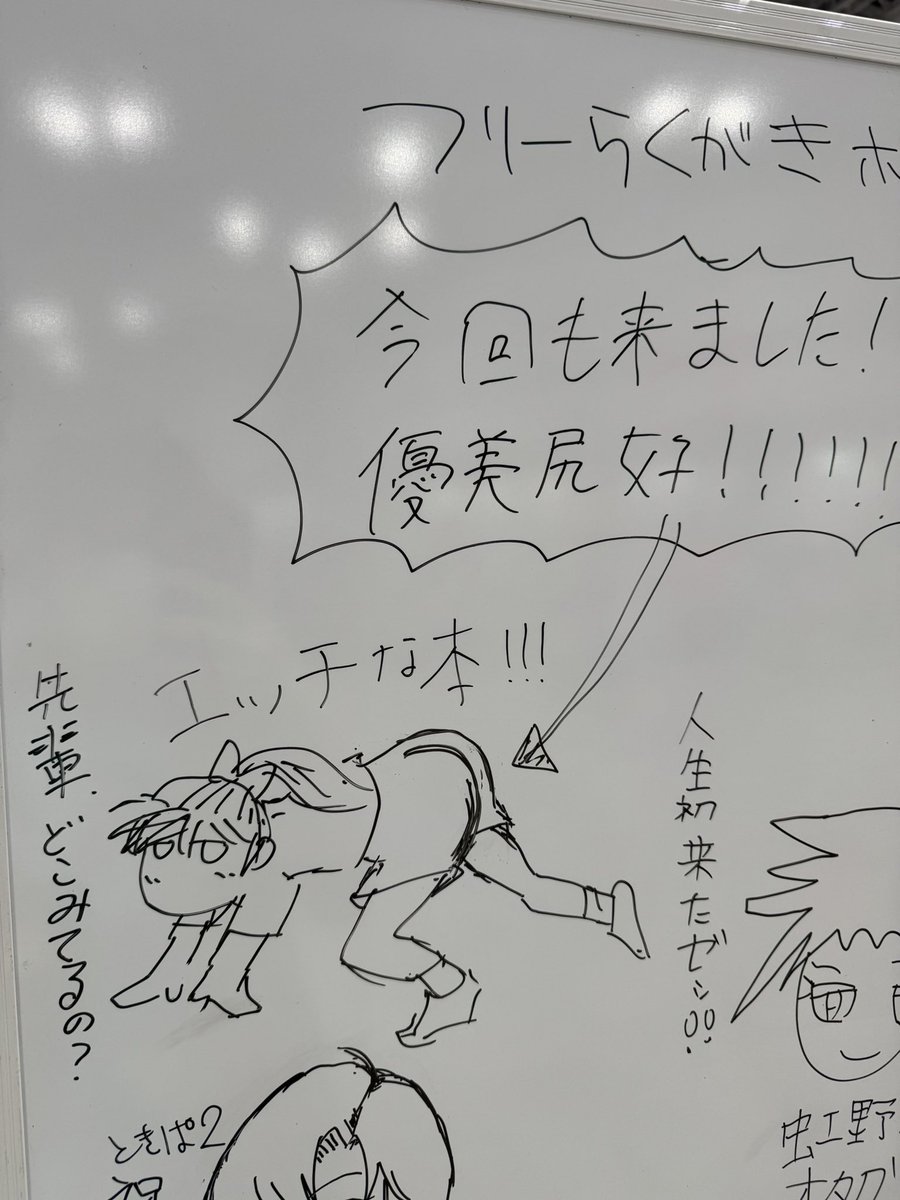 フリーらくがきホ
今回も来ました!
優美尻好!!!!!!
エッチな本!!!
先輩、どこみてるの?
人生初来たゼ!!
ときぱ2
祝
虹野
オカグ